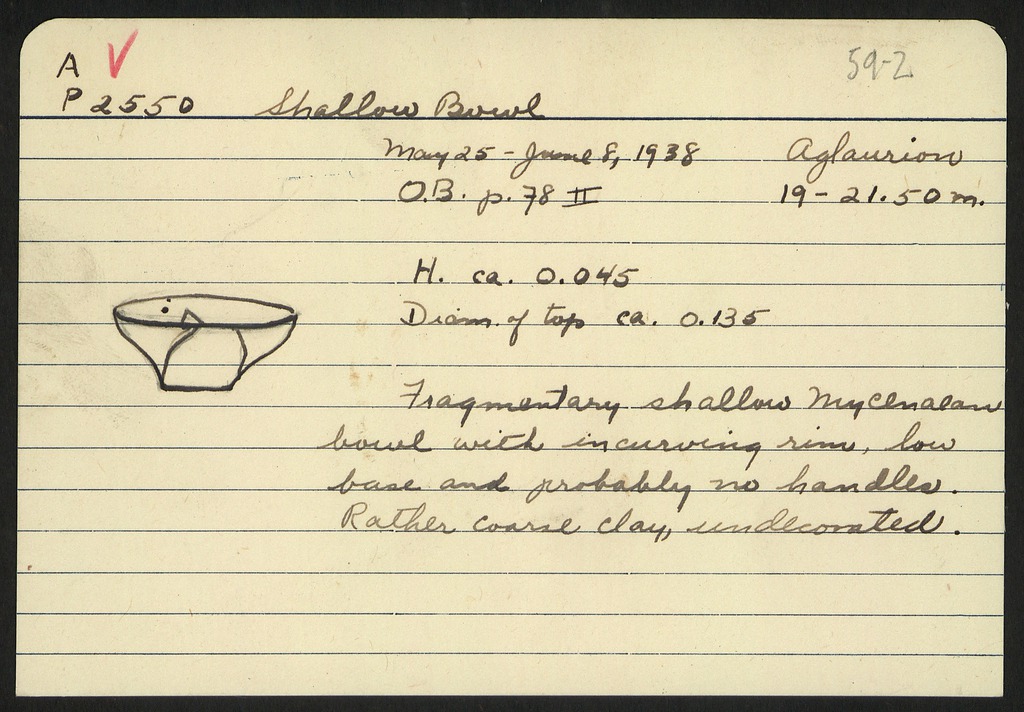 A V 59-2
P 2550 Shallow Bowl
May 25 - June 8, 1938 Aglaurion
O.B. p. 78 II 19 - 21.50 m.
H. ca. 0.045
Diam. of top ca. 0.135
Fragmentary shallow Mycenaean
bowl with incurving rim, low
base and probably no handles.
Rather coarse clay, undecorated.